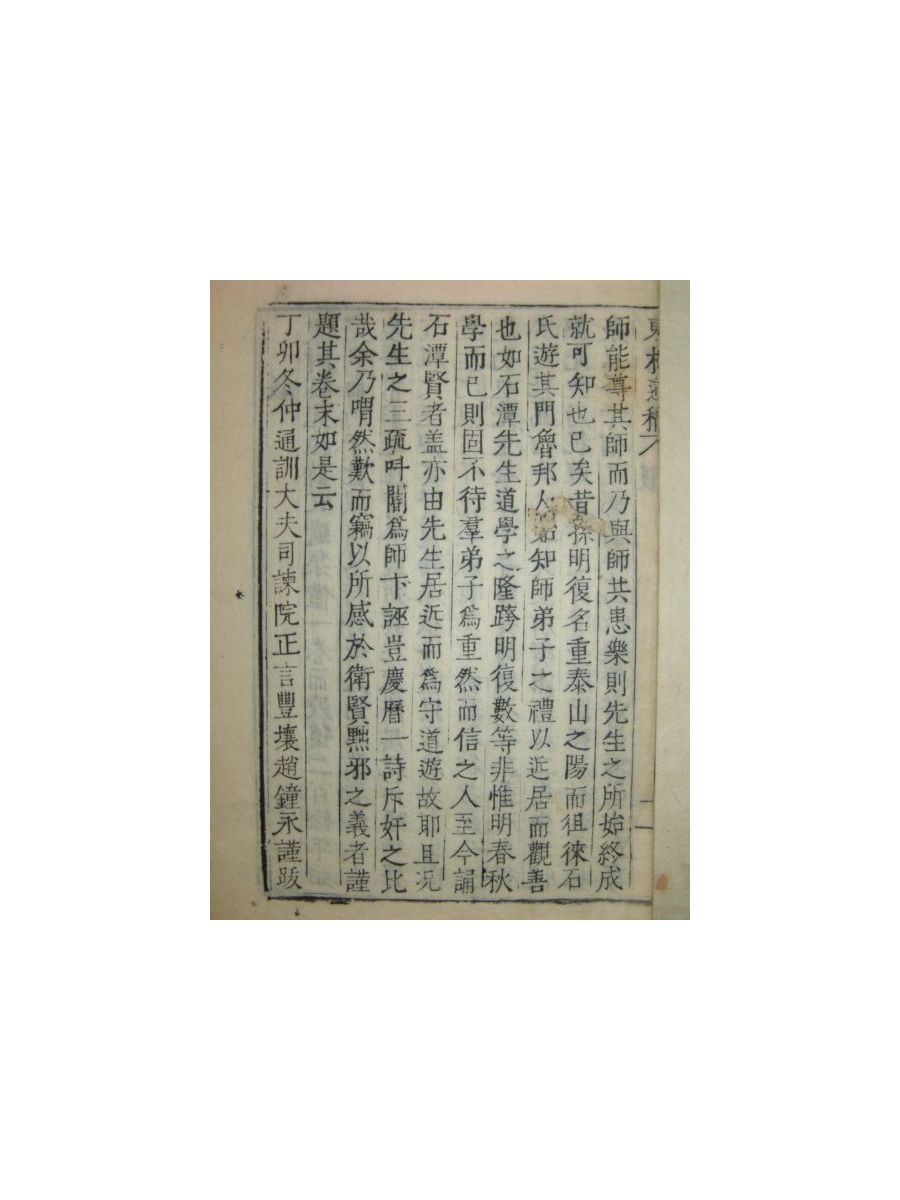 師能尊其師而乃與師共患樂則先生之所始終成
就可知也已矣昔孫明復名重泰山之陽而徂徠石
氏遊其門魯邦人始知師弟子之禮以近居而觀善
也如石潭先生道學之隆跨明復數等非惟明春秋
學而已則固不待羣弟子爲重然而信之人至今誦
石潭賢者盖亦由先生居近而爲守道遊故耶且况
先生之三疏呌閽爲師卞誣豈慶曆一詩斥奸之比
哉余乃喟然歎而竊以所感於衛賢黜邪之義者謹
題其卷末如是云
丁卯冬仲通訓大夫司諫院正言豐壤趙鐘永謹跋